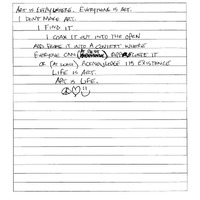 ART IS EVERYWHERE. EVERYTHING IS ART.
I DON'T MAKE ART.
I FIND IT
I COAX IT OUT INTO THE OPEN
AND FORCE IT INTO A CONTEXT WHERE
EVERYONE CAN APPRECIATE IT
OR (AT LEAST) ACKNOWLEDGE ITS EXISTANCE
LIFE IS ART.
ART IS LIFE.